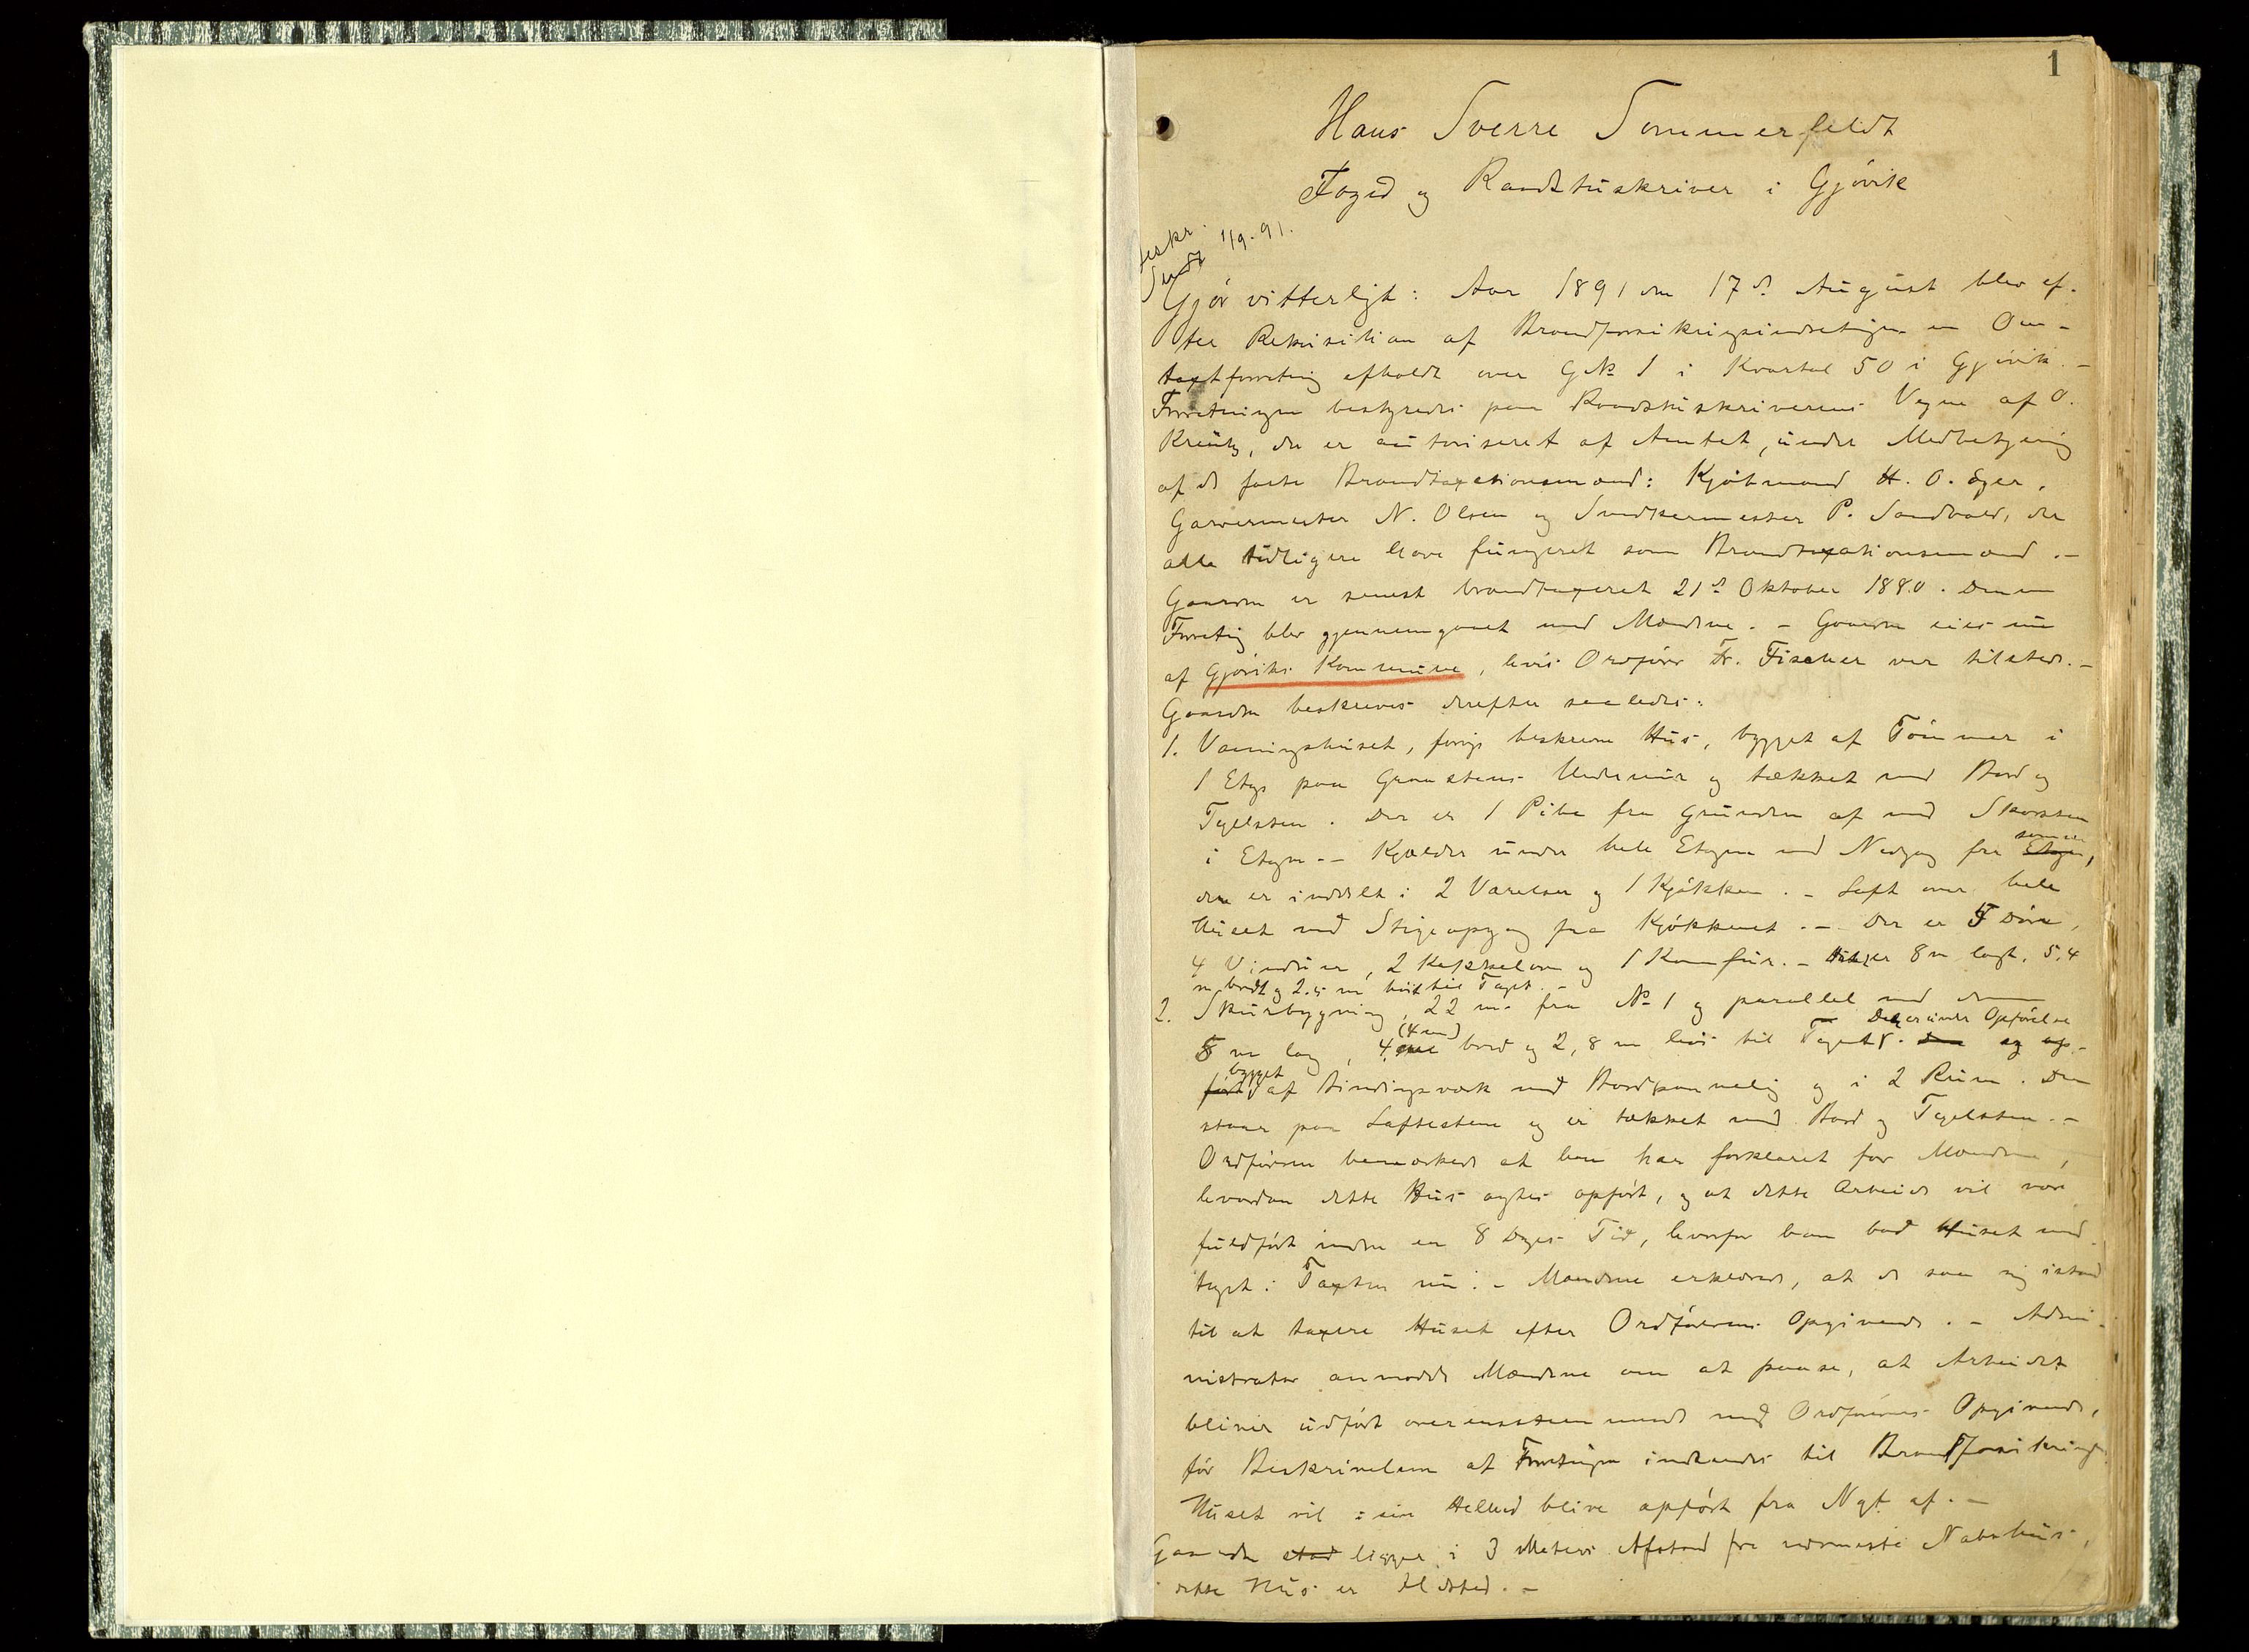 1
Hans Sverre Sommerfeldt
Foged og Raadstuskriver i Gjövik
Beskr.
Sendt 1/9-91.
Gjör vitterligt: Aar 1891 den 17de August blev ef-
ter Rekvisition af Brandforsikringsindretningen en Om-
taxtforretning afholdt over G № 1 i Kvartal 50 i Gjövik. -
Forretningen bestyredes paa Raadstuskriverens Vegne af O.
Kreutz, der er autoriseret af Amtet, under Medbetjening
af de faste Brandtaxationsmænd: Kjöbmand H. O. Eger,
Garvermester N. Olsen og Snedkermester P. Sandvold, der
alle tidligere have fungeret som Brandtaxationsmænd. -
Gaarden er senest brandtaxeret 21de Oktober 1880. Denne
Forretning blev gjennemgaaet med Mændene. - Gaarden eies nu
af Gjöviks Kommune, hvis Ordförer Fr. Fischer var tilstede. -
Gaarden beskreves derefter saaledes:
1. Vaaningshuset, forrige beskrevne Hus, bygget af Tömmer i
1 Etage paa Graastens Undermur og tækket med Bord og
Teglsten. Der er 1 Pibe fra Grunden af med Skorsten
i Etagen. - Kjælder under hele Etagen med Nedgang fra Etagen,
som er
der er inddelt i 2 Værelser og 1 Kjökken. - Loft over hele
Huset med Stigeopgang fra Kjökkenet. - Der er 5 Döre,
4 Vinduer, 2 Kakkelovne og 1 Komfur. - Huset er 8 m langt, 5,4
m bredt og 2,5 m höit til Taget. -
2. Skurbygning, 22 m fra № 1 og parallel med denne
8 m lang, 4 (4 m) bred og 2,8 m höi til Taget. Den er under Opförelse
Den og op-
fört bygget af Bindingsværk med Bordpanneling og i 2 Rum. Den
staar paa Löftestene og er tækket med Bord og Teglsten. -
Ordföreren bemærkede at han har forklaret for Mændene,
hvordan dette Hus agtes opfört, og at dette Arbeide vil være
fuldfört inden en 8 Dages Tid, hvorfor han bad Huset med-
taget i Taxten nu. - Mændene erklærede, at de saa sig istand
til at taxere Huset efter Ordförerens Opgivende. - Admi-
nistrator anmodede Mændene om at paase, at Arbeidet
bliver udfört overensstemmende med Ordförerens Opgivende,
för Beskrivelsen af Forretningen indsendes til Brandforsikringen
Huset vil i sin Helhed blive opfört fra Nyt af. -
Gaarden stod ligger i 3 Meters Afstand fra nærmeste Nabohus,
i dette Hus er Ildsted. -